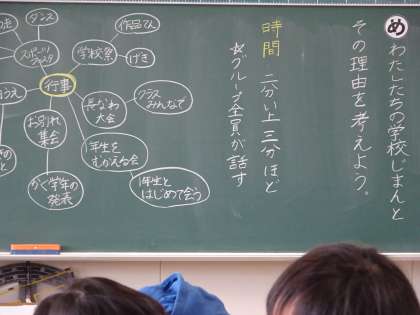 め
わたしたちの学校じまんと
その理由を考えよう。
時間 二分以上三分ほど
☆グループ全員が話す
作品てん
学校祭
げき
ダンス
スポーツ
フェスタ
行事
長なわ
大会
クラス
みんなで
お別れ
集会
かく学年の
発表
1年生を
むかえる会
1年生と
はじめて会う